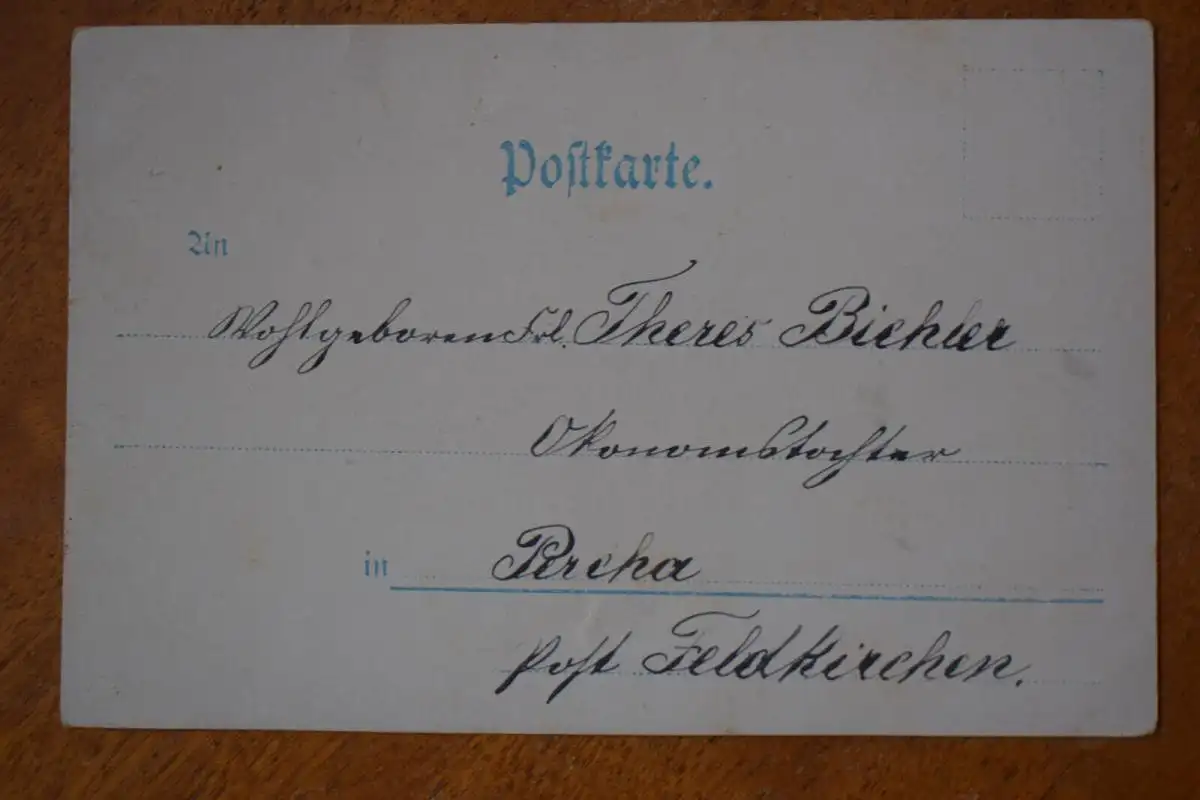 Postkarte.
An
Wohlgeboren Frl. Theres Bichler
Ökonomstochter
in Percha
Post Feldkirchen.